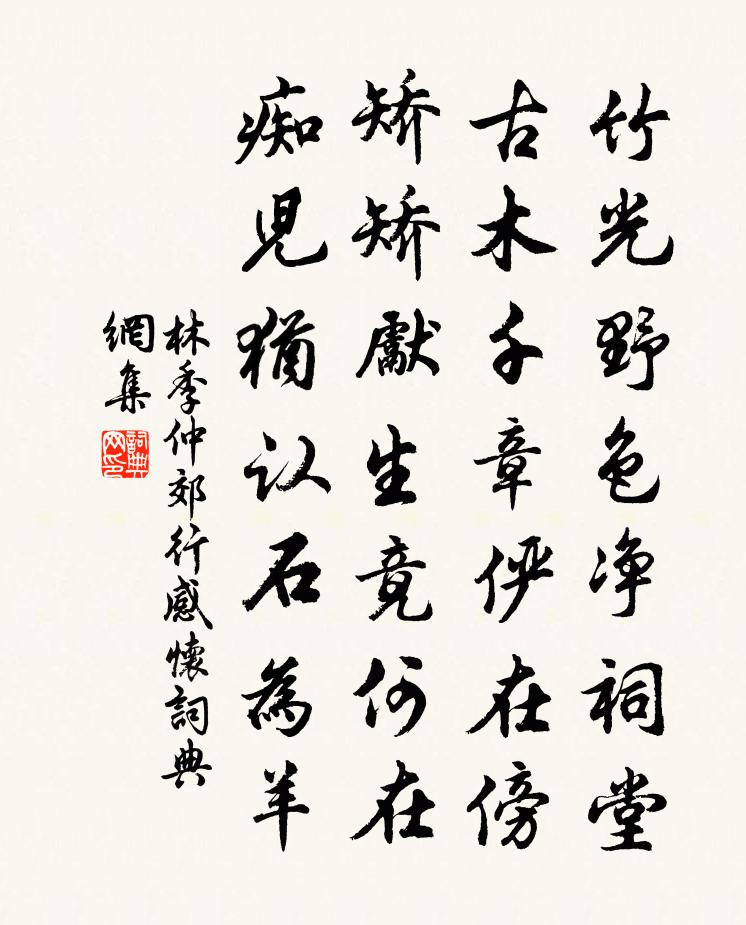 竹光野色净祠堂
古木千章俨在傍
矫矫獻生竟何在
痴児猶认石為羊
林季仲郊行感懷詞典
網集
詞典
网印